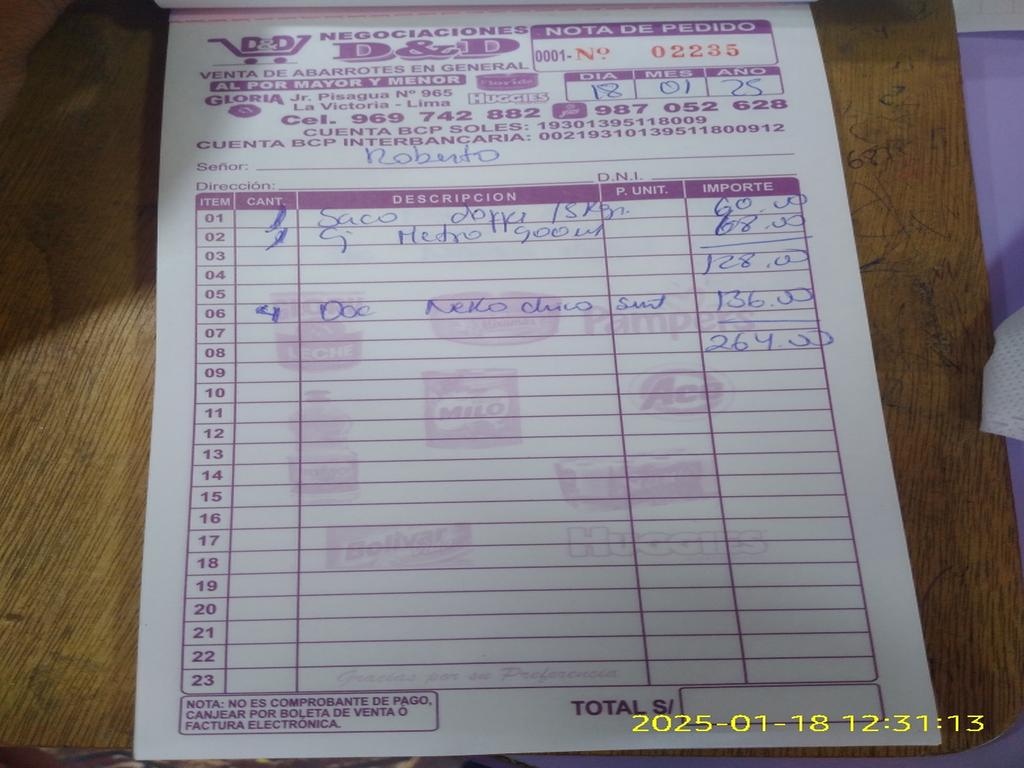 D&D
NEGOCIACIONES
D&D
VENTA DE ABARROTES EN GENERAL
AL POR MAYOR Y MENOR
GLORIA Jr. Pisagua Nº 965
La Victoria - Lima
HUGGIES
Cel. 969 742 882 987 052 628
CUENTA BCP SOLES: 19301395118009
CUENTA BCP INTERBANCARIA: 00219310139511800912
NOTA DE PEDIDO
0001- Nº 02235
DIA MES AÑO
18 01 25
Señor: Roberto
Dirección: D.N.I.
ITEM CANT. DESCRIPCION P. UNIT. IMPORTE
01 1 Saco 15Kgr. 60.00
02 1 Metro 900ml 68.00
03 128.00
04
05
06 4 Doc Neko chico 136.00
07
08 264.00
09
10
11
12
13
14
15
16
17
18
19
20
21
22
23
LECHE
Pampers
MILO
Ace
Bolivar
HUGGIES
Gracias por su Preferencia
NOTA: NO ES COMPROBANTE DE PAGO,
CANJEAR POR BOLETA DE VENTA Ó
FACTURA ELECTRÓNICA.
TOTAL S/
2025-01-18 12:31:13